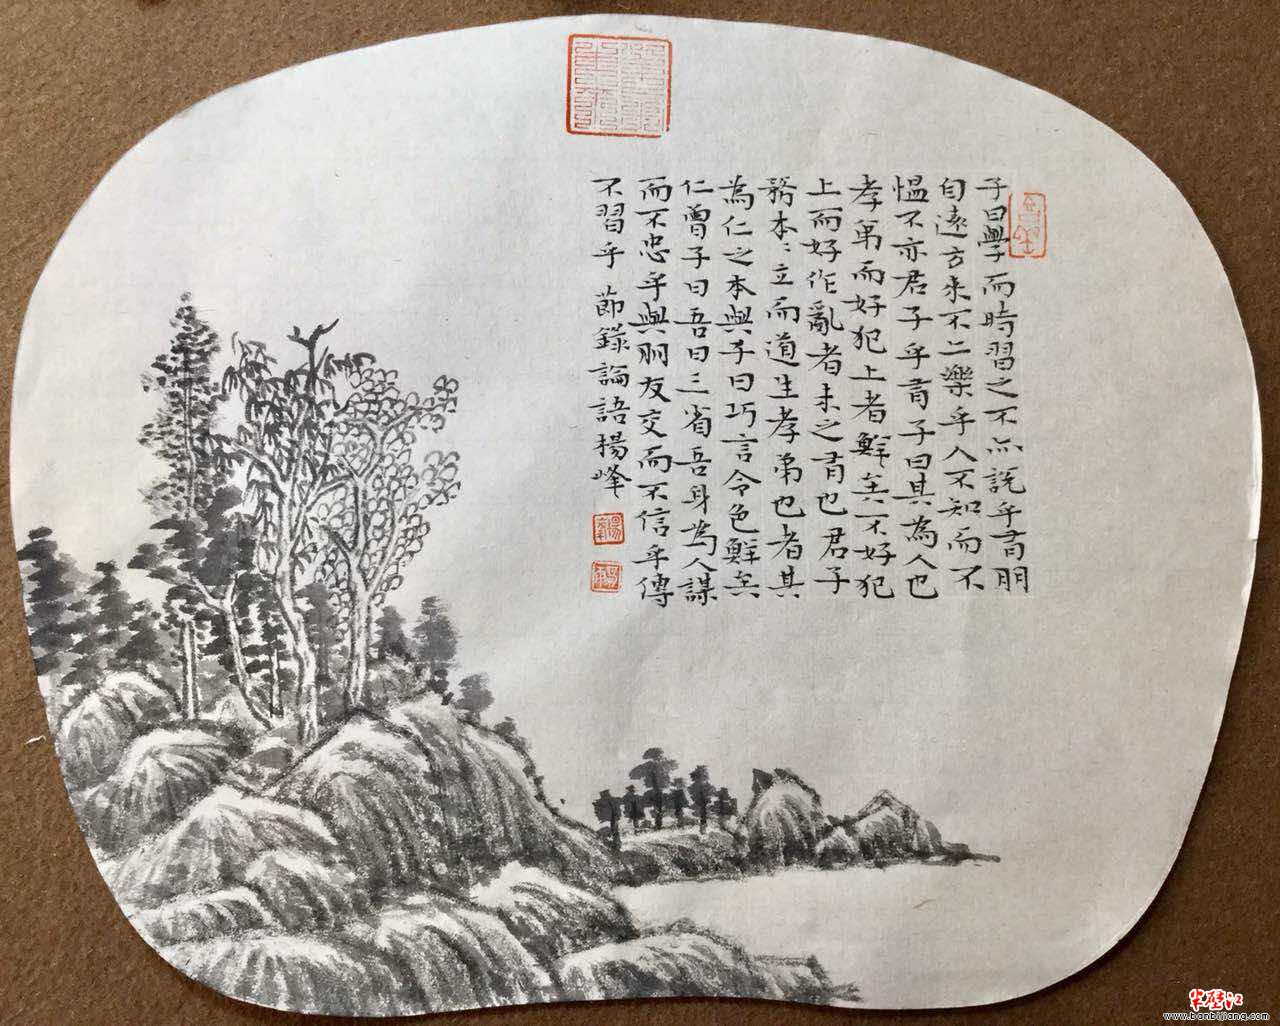 子曰學而時習之不亦說乎有朋
自遠方來不二樂乎人不知而不
慍不亦君子乎有子曰其為人也
孝弟而好犯上者鮮矣不好犯
上而好作亂者未之有也君子
務本〻立而道生孝弟也者其
為仁之本與子曰巧言令色鮮矣
仁曾子曰吾日三省吾身為人謀
而不忠乎與朋友交而不信乎傳
不習乎 節錄論語楊峰
半壁江
www.banbijiang.com